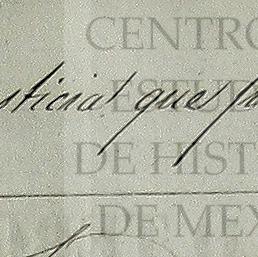 CENTRO
ESTU
DE HIST
DE MEX
sticia que